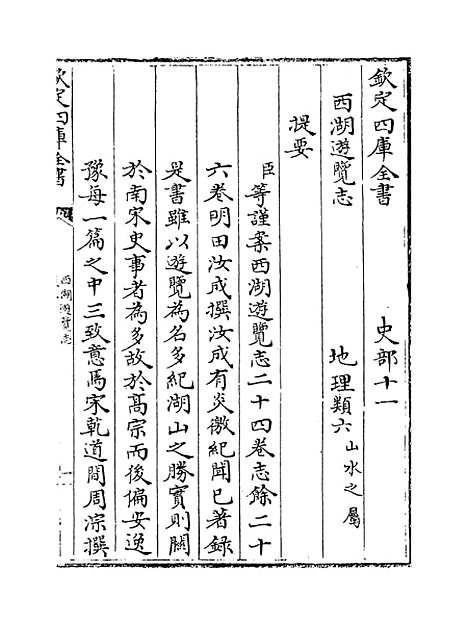 欽定四庫全書 史部十一
西湖遊覽志 地理類六山水之屬
提要
臣等謹案西湖遊覽志二十四卷志餘二十
六卷明田汝成撰汝成有炎徼紀聞已著録
是書雖以遊覽為名多紀湖山之勝實則關
於南宋史事者為多故於髙宗而後偏安逸
豫每一篇之中三致意焉宋乾道間周淙撰
欽定四庫全書
西湖遊覽志
一